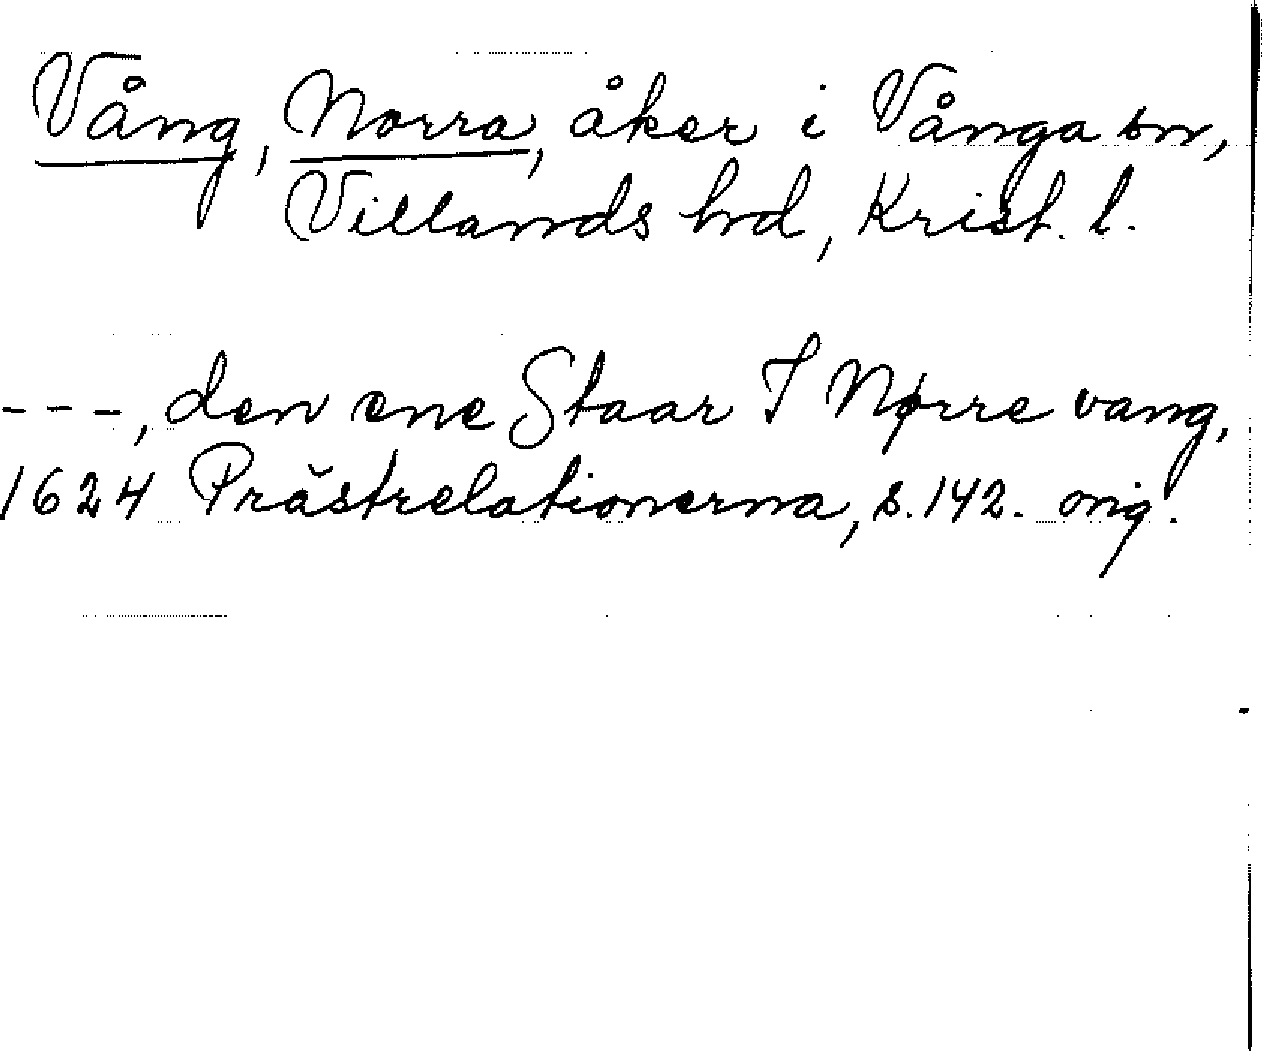 Vång, Norra, åker i Vånga sn,
Villands hd, Krist. l.
---, den ene Staar I Nørre vang,
1624 Prästrelationerna, s. 142. orig.